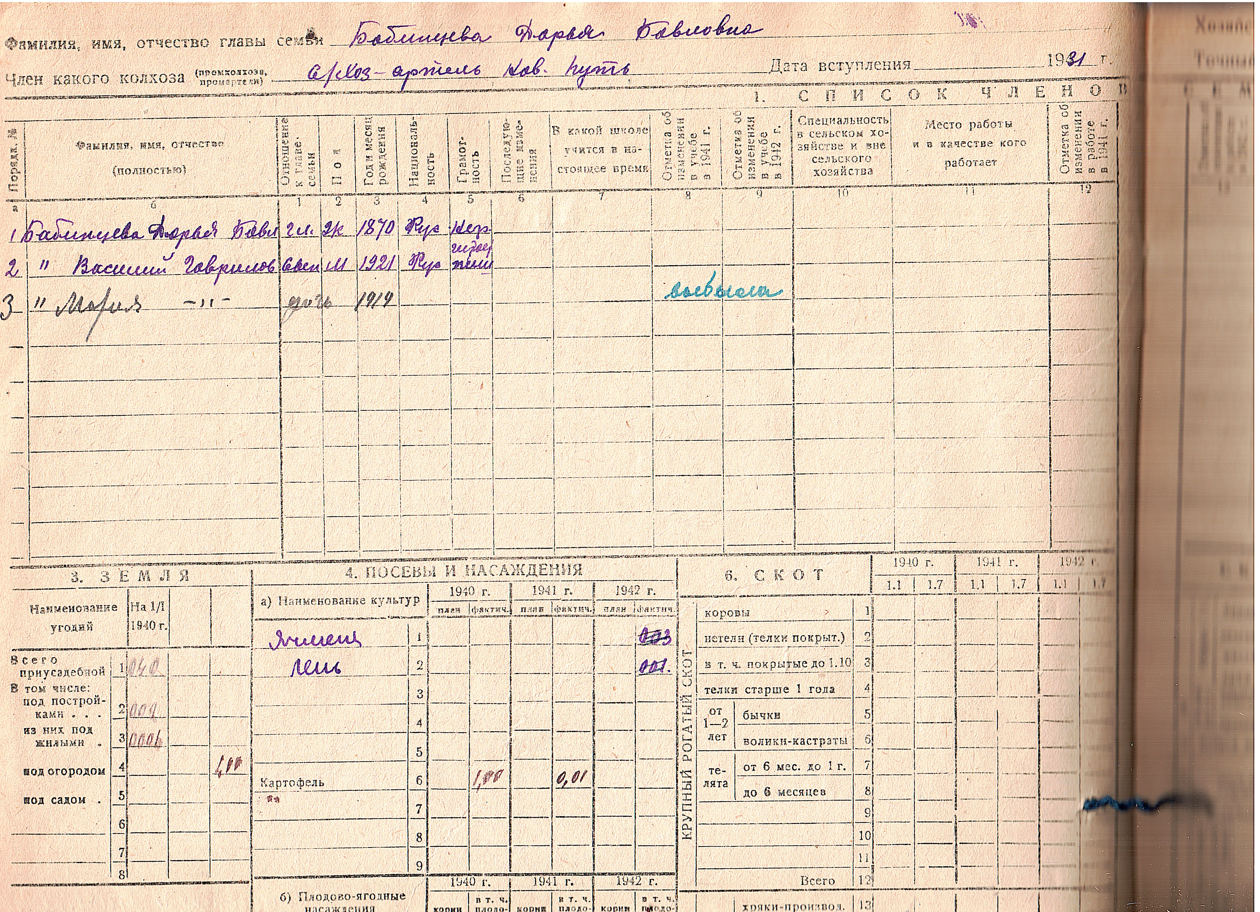 Фамилия, имя, отчество главы семьи Бабинцева Дарья Павловна
Член какого колхоза (промколхоза, промартели) с/хоз-артель Нов. путь Дата вступления 1931 г.
1. СПИСОК ЧЛЕНОВ
Порядк. №
Фамилия, имя, отчество (полностью)
Отношение к главе семьи
Пол
Год и месяц рождения
Националь- ность
Грамот- ность
Последую- щие изме- нения
В какой школе учится в на- стоящее время
Отметка об изменении в учебе в 1941 г.
Отметка об изменения в учебе в 1942 г.
Специальность в сельском хо- зяйстве и вне сельского хозяйства
Место работы и в качестве кого работает
Отметка об изменении в работе в 1941 г.
а б 1 2 3 4 5 6 7 8 9 10 11 12
1 Бабинцева Дарья Павл гл. ж 1870 Рус Негр
2 " Василий Гаврилов М 1921 Рус
3 " Мария -"- дочь 1919 выбыла
3. ЗЕМЛЯ
Наименование угодий
На 1/I 1940 г.
Всего приусадебной 1 040
В том числе:
под построй- ками . . . 2 001
из них под жилыми . 3
под огородом 4
под садом . 5
6
7
8
4. ПОСЕВЫ И НАСАЖДЕНИЯ
а) Наименование культур
1940 г. 1941 г. 1942 г.
план фактич. план фактич. план фактич.
Ячмень 1 003
лень 2 001.
3
4
5
Картофель 6 1,00 0,01
"" 7
8
9
1940 г. 1941 г. 1942 г.
б) Плодово-ягодные насаждения
корни в т. ч. плодо- корни в т. ч. плодо- корни в т. ч. плодо-
6. СКОТ
1940 г. 1941 г. 1942 г.
1.1 1.7 1.1 1.7 1.1 1.7
КРУПНЫЙ РОГАТЫЙ СКОТ
коровы 1
нетели (телки покрыт.) 2
в т. ч. покрытые до 1.10 3
телки старше 1 года 4
от 1—2 лет
бычки 5
волики-кастраты 6
те- лята
от 6 мес. до 1 г. 7
до 6 месяцев 8
9
10
11
Всего 12
хряки-производ. 13
Хозяйс
Точный